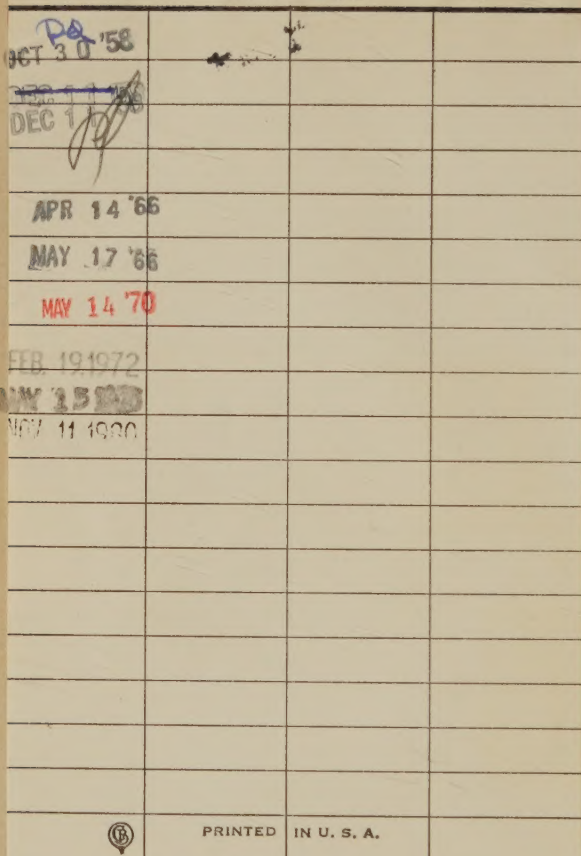 OCT 30 '58
DEC 11
APR 14 '66
MAY 17 '66
MAY 14 '70
FEB. 19.1972
MAY 15
NOV 11
PRINTED IN U. S. A.